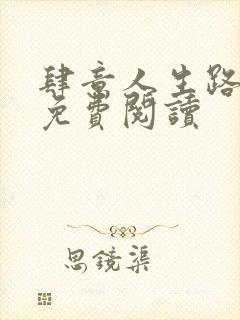 肆意人生路
免費閱讀
思鏡渠